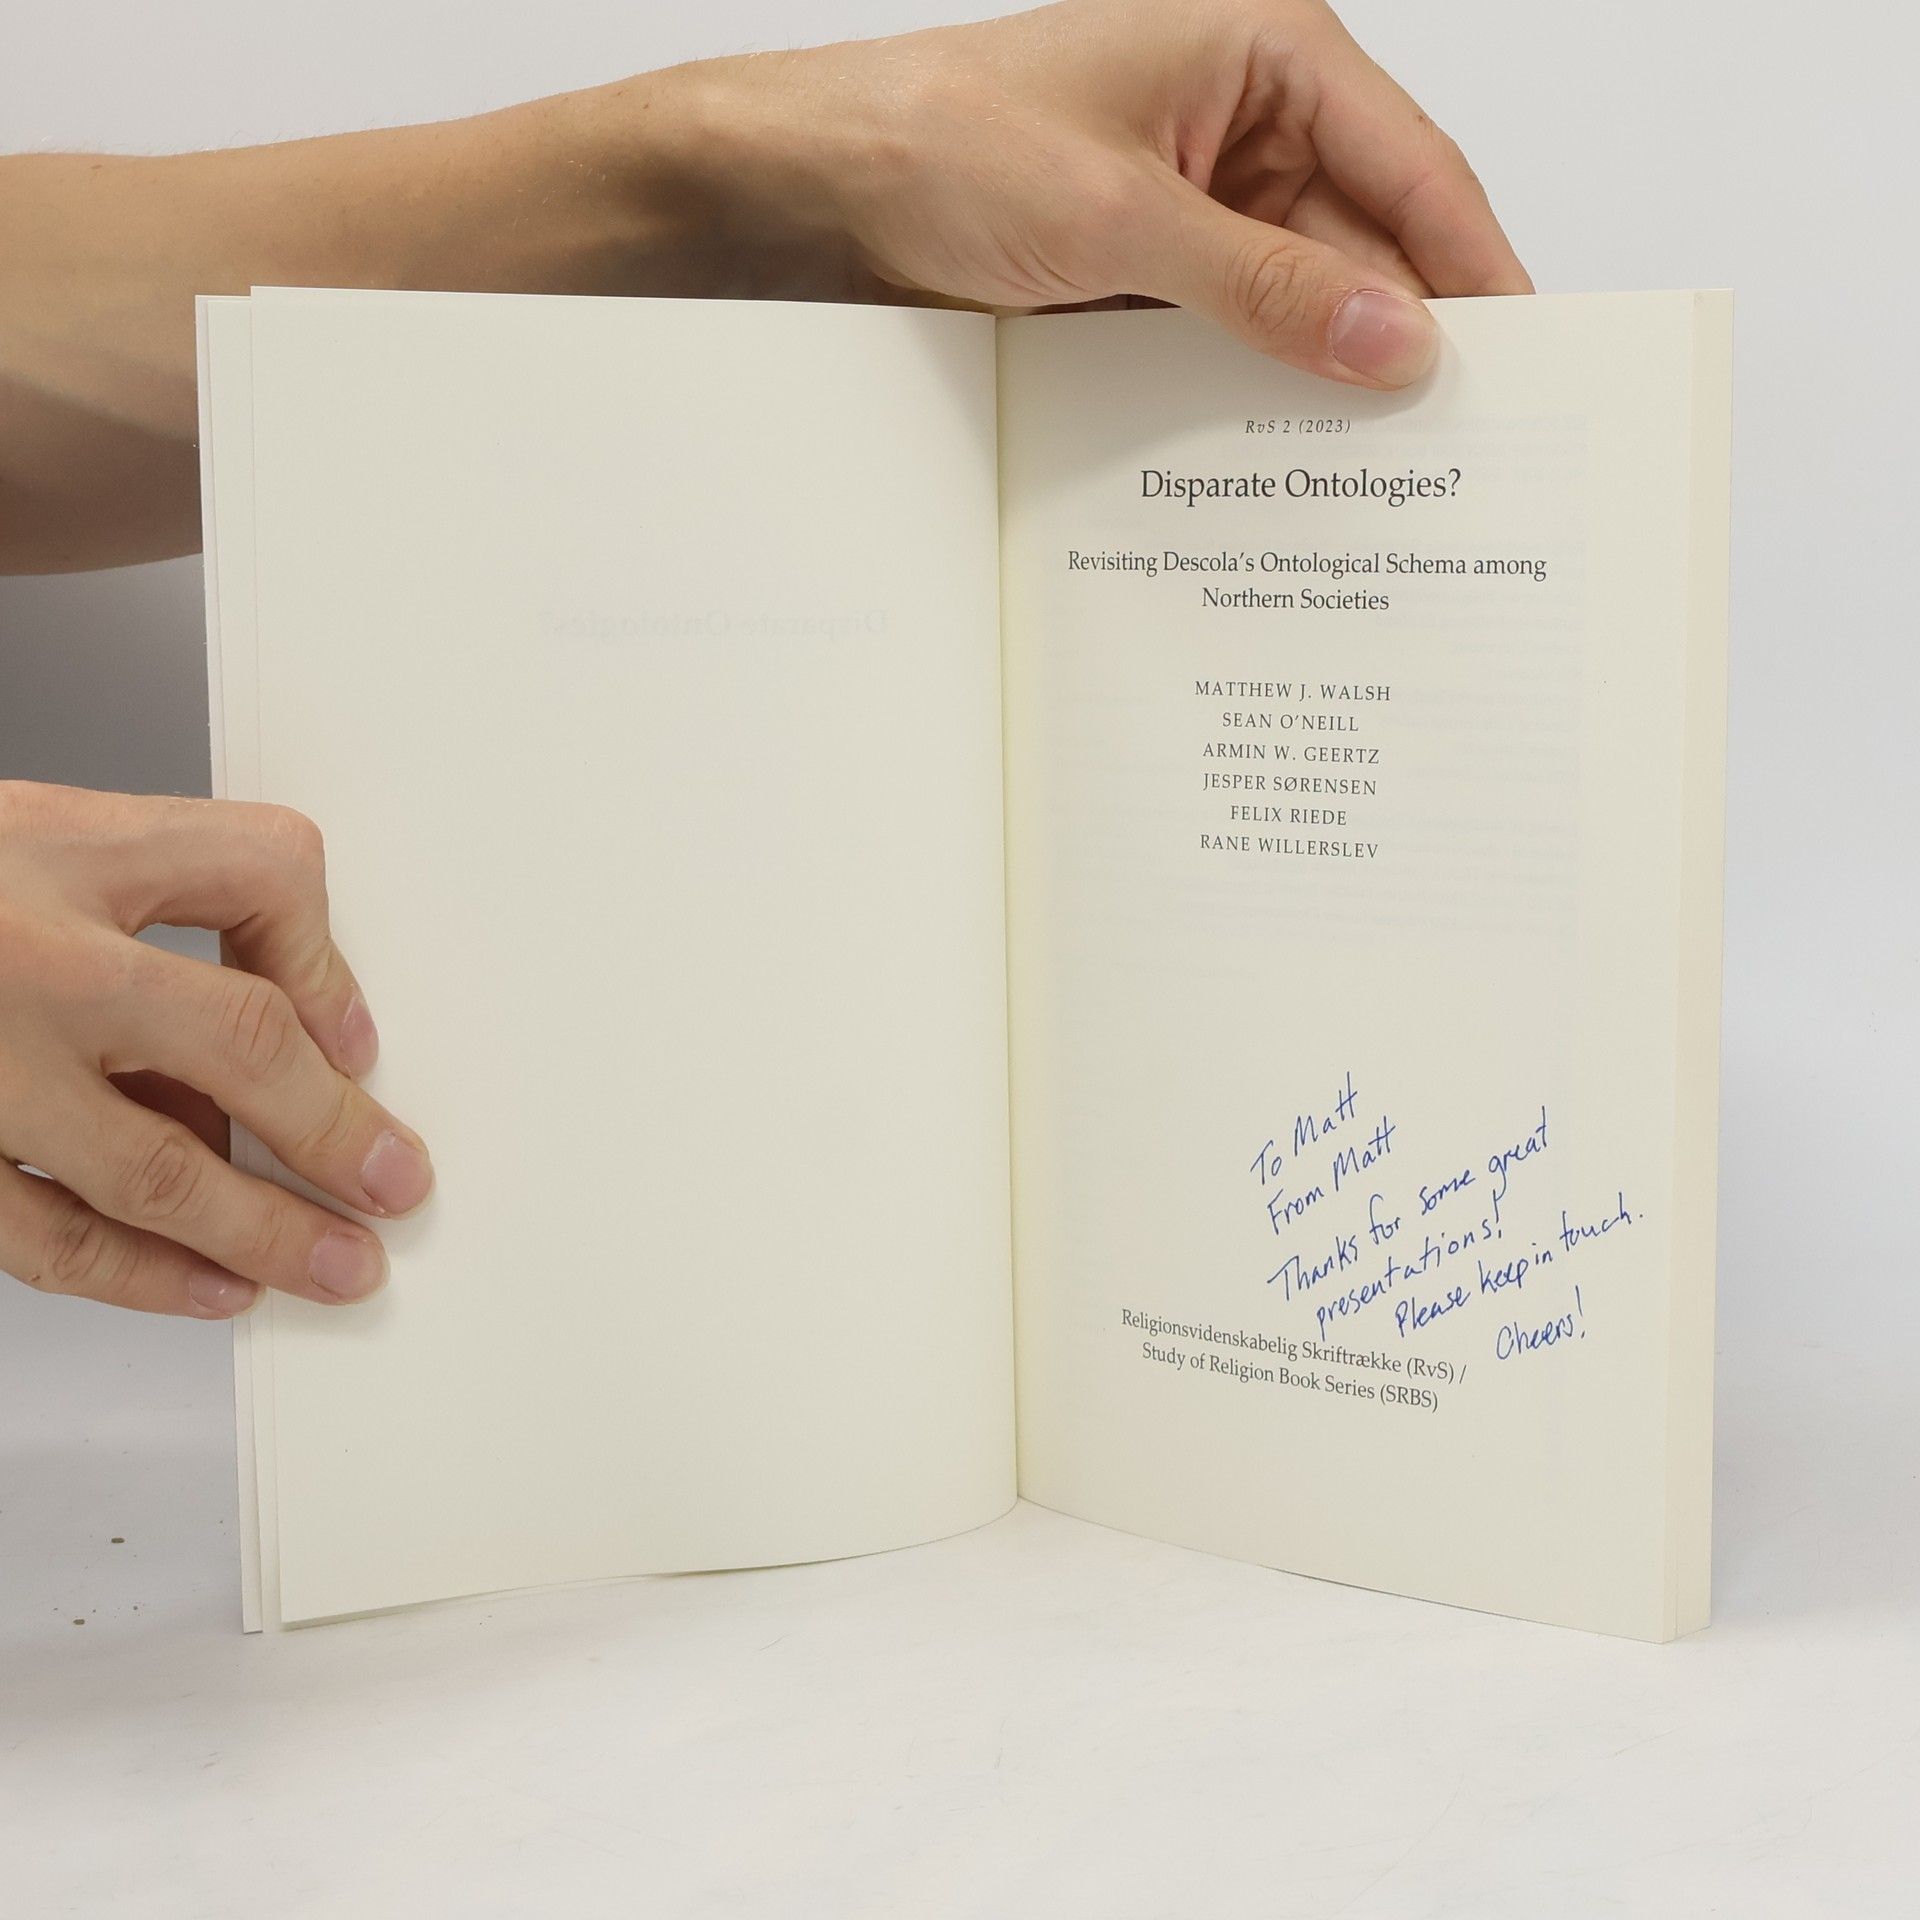 RvS 2 (2023)
Disparate Ontologies?
Revisiting Descola's Ontological Schema among
Northern Societies
MATTHEW J. WALSH
SEAN O'NEILL
ARMIN W. GEERTZ
JESPER SØRENSEN
FELIX RIEDE
RANE WILLERSLEV
To Matt
From Matt
Thanks for some great
presentations!
Please keep in touch.
Cheers!
Religionsvidenskabelig Skriftrække (RvS) /
Study of Religion Book Series (SRBS)